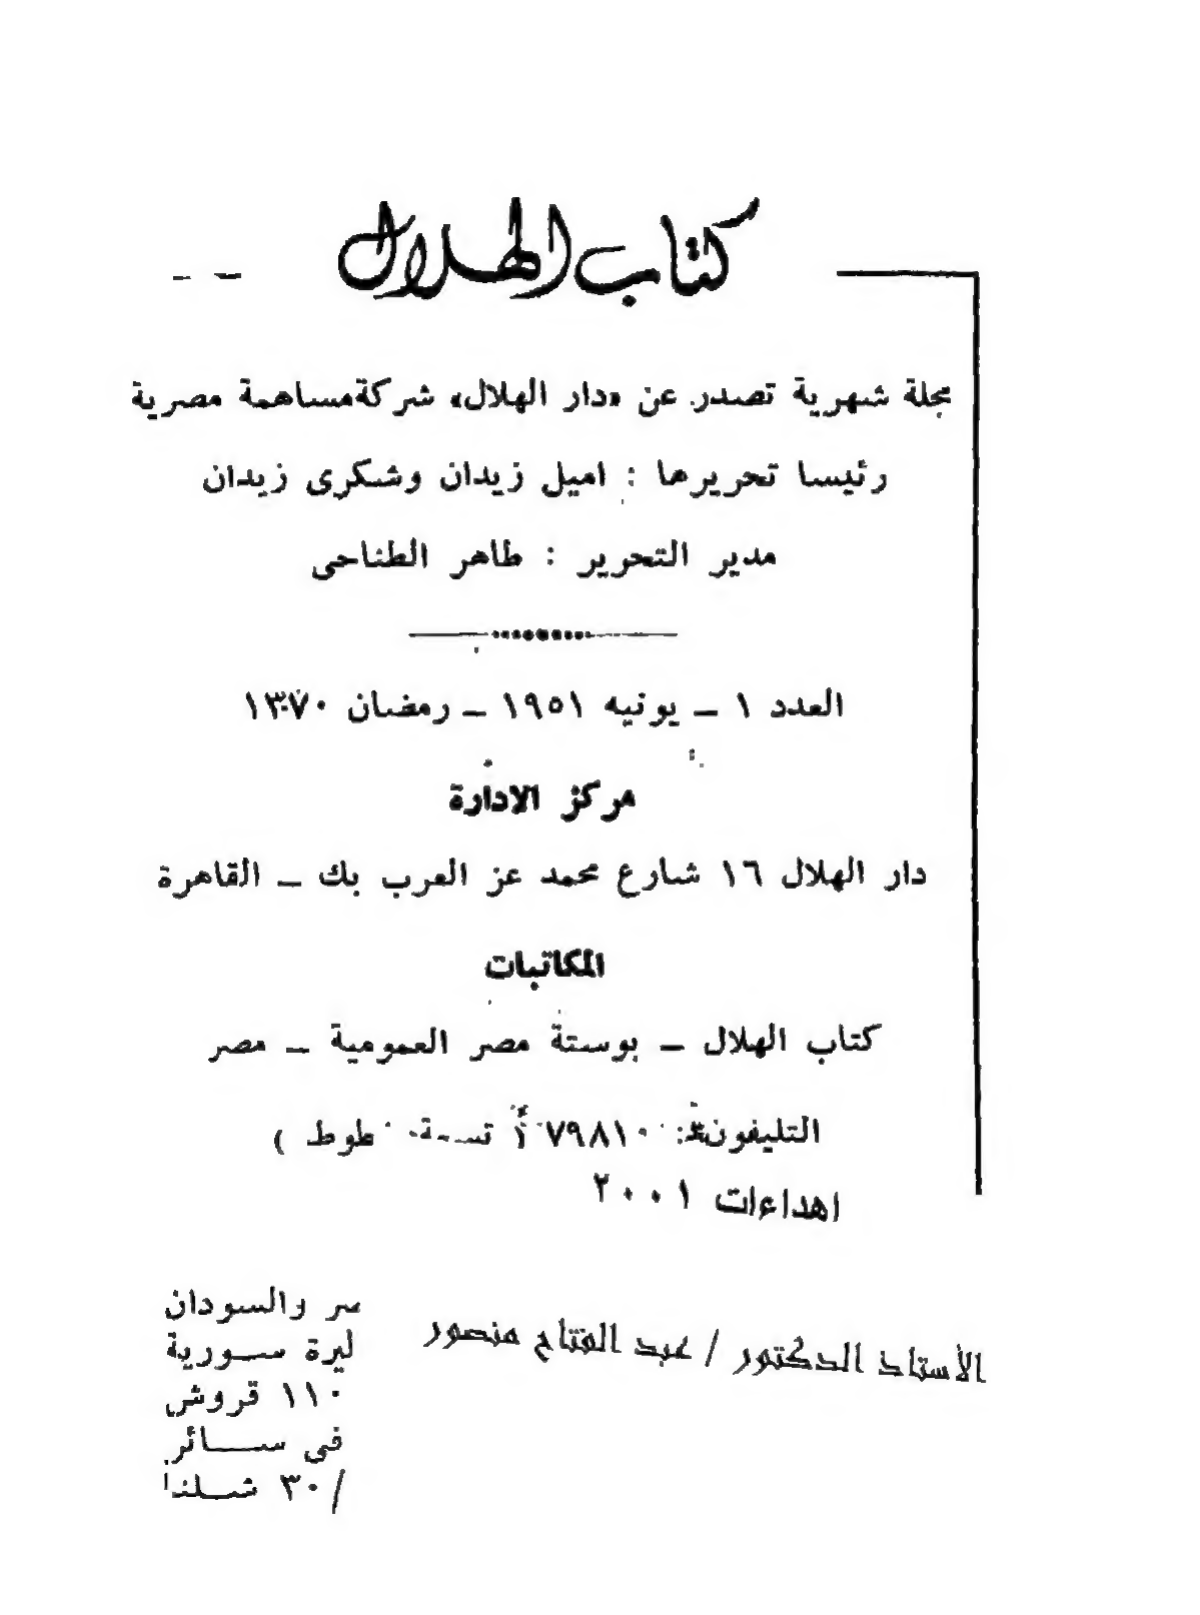 كتاب الهلال
مجلة شهرية تصدر عن «دار الهلال» شركة مساهمة مصرية
رئيسا تحريرها : اميل زيدان وشكرى زيدان
مدير التحرير : طاهر الطناحى
العدد ١ – يونيه ١٩٥١ – رمضان ١٣٧٠
مركز الادارة
دار الهلال ١٦ شارع محمد عز العرب بك – القاهرة
المكاتبات
كتاب الهلال – بوستة مصر العمومية – مصر
التليفون: ٧٩٨١٠
اهداءات ٢٠٠١
الأستاذ الدكتور / عبد الفتاح منصور
والسودان
ليرة سورية
١١٠ قروش
فى سائر
/ ٣٠ شلنا